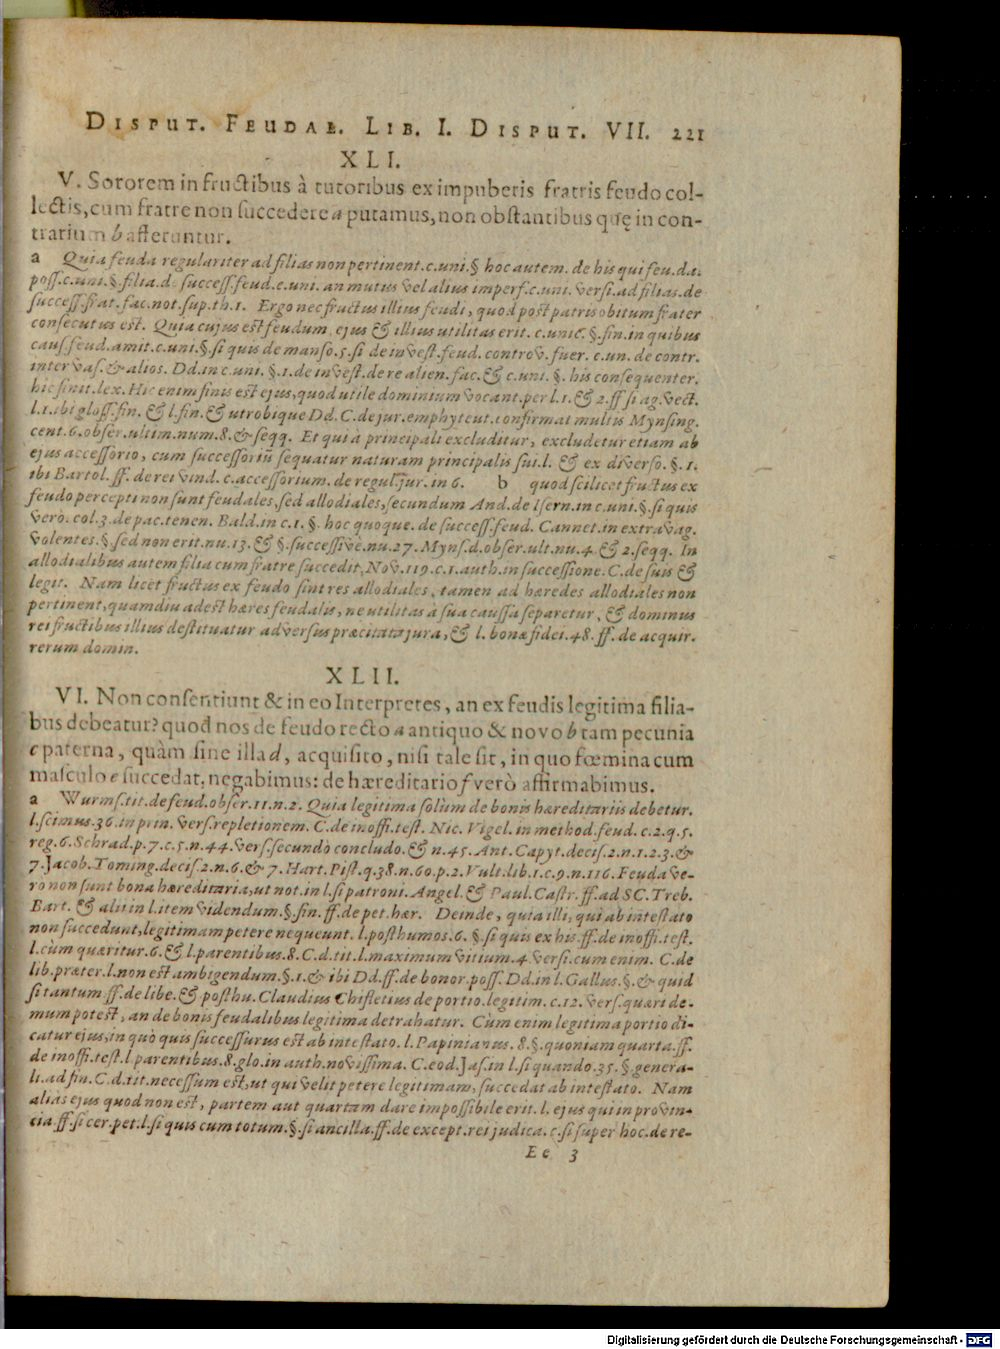 DISPUT. FEUDAE. LIB. I. DISPUT. VII. 221
XLI.
V. Sororem in fructibus à tutoribus ex impuberis fratris feudo col-
lectis, cum fratre non succedere a putamus, non obstantibus quę in con-
trarium b afferuntur.
a Quia feuda regulariter ad filias non pertinent. c. uni. § hoc autem. de his qui feu. d. a.
poss. c. uni. §. filia. de success. feud. c. uni. an mutus vel alius imperf. c. uni. versi. ad filias. de
success. frat. fac. not. sup. th. 1. Ergo nec fructus illius feudi, quod post patris obitum frater
consecutus est. Quia cujus est feudum, ejus & illius utilitas erit. c. unic. §. fin. in quibus
caus. feud. amit. c. uni. §. si quis de manso. 5. si de invest. feud. controv. fuer. c. un. de contr.
inter vas. & alios. Dd. in c. uni. §. 1. de invest. de re alien. fac. & c. uni. §. his consequenter.
hic finit. lex. Hic enim finis est ejus, quod utile dominium vocant. per l. 1. & 2. ff si ag. vect.
l. 1. ibi gloss. fin. & l. fin. & utrobique Dd. C. de jur. emphyteut. confirmat multis Mynsing.
cent. 6. obser. ultim. num. 8. & seqq. Et qui à principali excluditur, excludetur etiam ab
ejus accessorio, cum successoriū sequatur naturam principalis sui. l. & ex diverso. §. 1.
ibi Bartol. ff. de rei vind. c. accessorium. de regul. jur. in 6. b quod scilicet fructus ex
feudo percepti non sunt feudales, sed allodiales, secundum And. de Isern. in c. uni. §. si quis
vero. col. 3. de pac. tenen. Bald. in c. 1. §. hoc quoque. de success. feud. Cannet. in extravag.
volentes. §. sed non erit. nu. 13. & §. successivè. nu. 27. Myns. d. obser. ult. nu. 4. & 2. seqq. In
allodialibus autem filia cum fratre succedit, Nov. 119. c. 1. auth. in successione. C. de suis &
legit. Nam licet fructus ex feudo sint res allodiales, tamen ad hæredes allodiales non
pertinent, quamdiu adest hæres feudalis, ne utilitas à sua caussa separetur, & dominus
rei fructibus illius destituatur adversus præcitata jura, & l. bonæ fidei. 48. ff. de acquir.
rerum domin.
XLII.
VI. Non consentiunt & in eo Interpretes, an ex feudis legitima filia-
bus debeatur? quod nos de feudo recto a antiquo & novo b tam pecunia
c paterna, quàm sine illa d, acquisito, nisi tale sit, in quo fœmina cum
masculo e succedat, negabimus: de hæreditario f verò affirmabimus.
a Wurms. tit. de feud. obser. 11. n. 2. Quia legitima solùm de bonis hæreditariis debetur.
l. scimus. 36. in prin. vers. repletionem. C. de inoffi. test. Nic. Vigel. in method. feud. c. 2. q. 5.
reg. 6. Schrad. p. 7. c. 5. n. 44. vers. secundò concludo. & n. 45. Ant. Capyt. decis. 2. n. 1. 2. 3. &
7. Jacob. Toming. decis. 2. n. 6. & 7. Hart. Pist. q. 38. n. 60. p. 2. Vult. lib. 1. c. 9. n. 116. Feuda ve-
rò non sunt bona hæreditaria, ut not. in l. si patroni. Angel. & Paul. Castr. ff. ad SC. Treb.
Bart. & alii in l. item videndum. §. fin. ff. de pet. hær. Deinde, quia illi, qui ab intestato
non succedunt, legitimam petere nequeunt. l. posthumos. 6. §. si quis ex his. ff. de inoffi. test.
l. cùm quæritur. 6. & l. parentibus. 8. C. d. tit. l. maximum vitium. 4. versi. cum enim. C. de
lib. præter. l. non est ambigendum. §. 1. & ibi Dd. ff. de bonor. poss. Dd. in l. Gallus. §. & quid
si tantum. ff. de libe. & posthu. Claudius Chifletius de portio. legitim. c. 12. vers. quæri de-
mum potest, an de bonis feudalibus legitima detrahatur. Cùm enim legitima portio di-
catur ejus, in quò quis successurus est ab intestato. l. Papinianus. 8. §. quoniam quarta. ff.
de inoffi. test. l parentibus. 8. glo. in auth. novissima. C. eod. Jas. in l. si quando. 35. §. genera-
li. ad fin. C. d. tit. necessum est, ut qui velit petere legitimam, succedat ab intestato. Nam
alias ejus quod non est, partem aut quartam dare impossibile erit. l. ejus qui in provin-
cia. ff. si cer. pet. l. si quis cum totum. §. si ancilla. ff. de except. rei judica. c. si super hoc. de re-
Ee 3
Digitalisierung gefördert durch die Deutsche Forschungsgemeinschaft - DFG